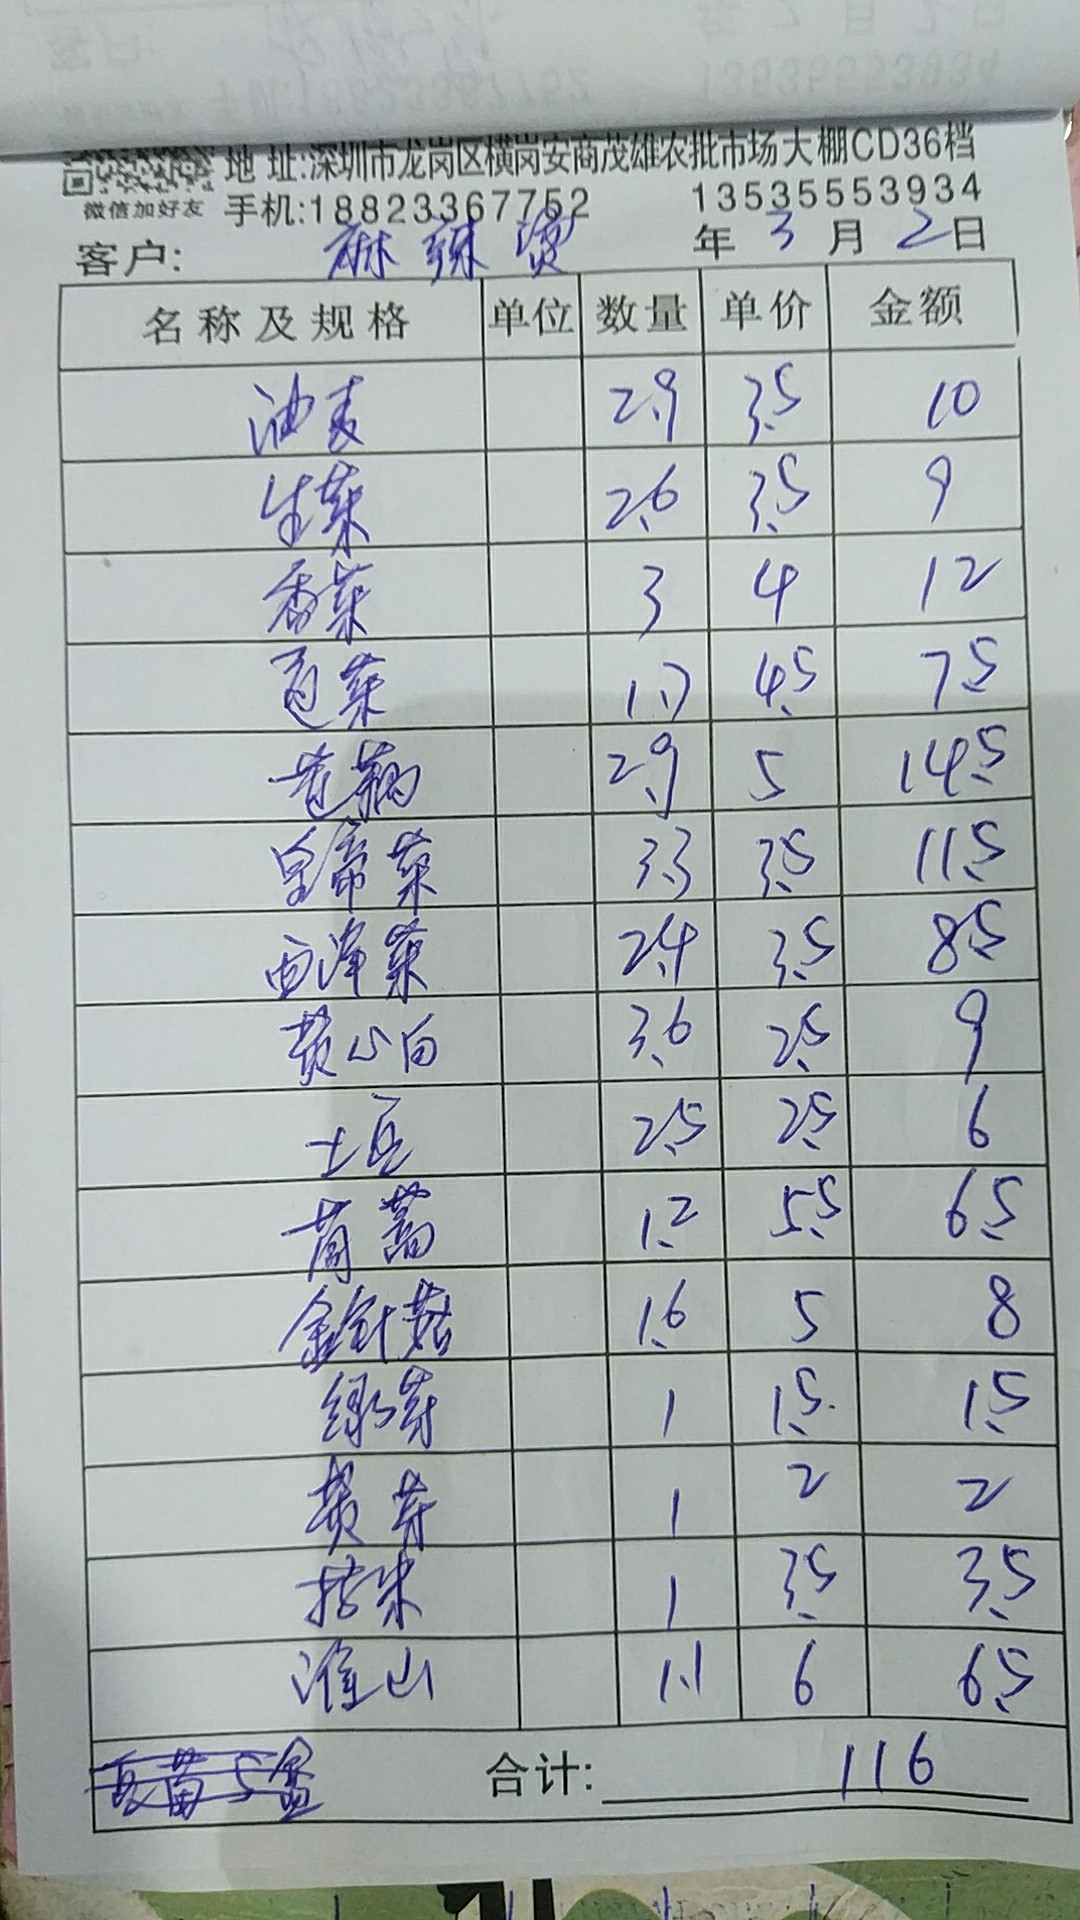 地 址:深圳市龙岗区横岗安商茂雄农批市场大棚CD36档
微信加好友 手机:18823367752 13535553934
客户: 麻辣烫 年 3 月 2 日
名称及规格 单位 数量 单价 金额
油麦 2.9 3.5 10
生菜 2.6 3.5 9
香菜 3 4 12
包菜 1.7 4.5 7.5
2.9 5 14.5
皇帝菜 3.3 3.5 11.5
西洋菜 2.4 3.5 8.5
黄心白 3.6 2.5 9
土豆 2.5 2.5 6
茼蒿 1.2 5.5 6.5
金针菇 1.6 5 8
绿芽 1 1.5 1.5
黄芽 1 2 2
1 3.5 3.5
淮山 1.1 6 6.5
豆苗5盒 合计: 116